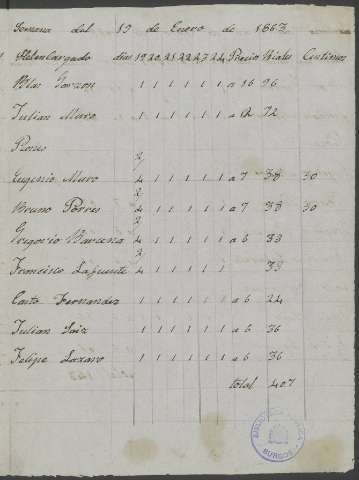 Semana del 19 de Enero de 1863
Sobrencargado días 19 20 21 22 23 24 Precio Reales Centimos
Blas Garzon 1 1 1 1 1 1 a 16 96
Julian Muro 1 1 1 1 1 1 a 12 72
Peones
Eugenio Muro 2/4 1 1 1 1 1 a 7 38 50
Bruno Porres 2/4 1 1 1 1 1 a 7 38 50
Gregorio Barcena 2/4 1 1 1 1 1 a 6 33
Francisco Lafuente 2/4 1 1 1 1 1 33
Casto Fernandez 1 1 1 1 a 6 24
Julian Saiz 1 1 1 1 1 1 a 6 36
Felipe Lazaro 1 1 1 1 1 1 a 6 36
total 407
BURGOS